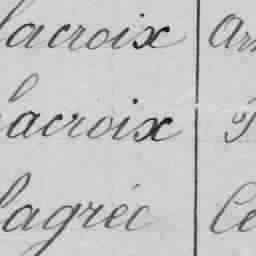 Lacroix Ar
Lacroix
Lagrée Cé